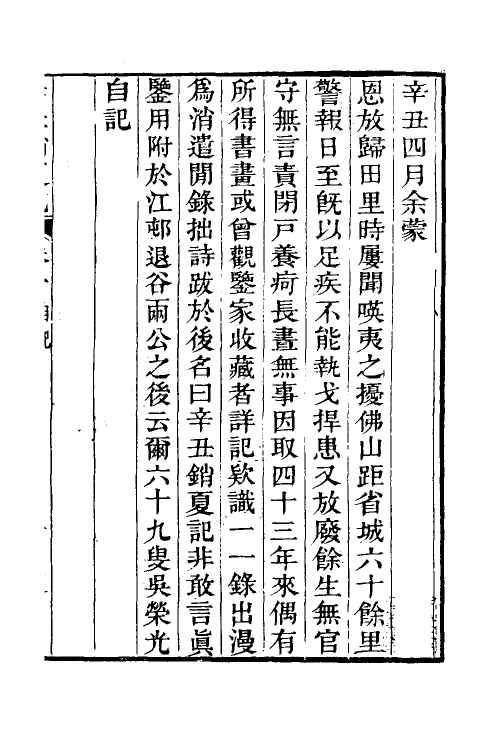 辛丑四月余蒙
恩放歸田里時屢聞暎夷之擾佛山距省城六十餘里
警報日至旣以足疾不能執戈捍患又放廢餘生無官
守無言責閉戸養疴長晝無事因取四十三年來偶有
所得書畫或曾觀鑒家收藏者詳記欵識一一錄出漫
爲消遣閒錄拙詩跋於後名曰辛丑銷夏記非敢言眞
鑒用附於江邨退谷兩公之後云爾六十九叟吳榮光
自記